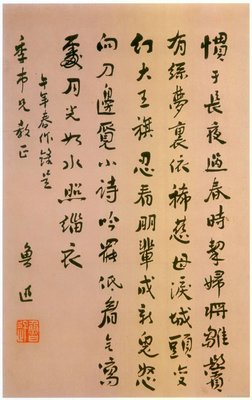 慣于長夜過春時挈婦將雛鬢
有絲夢裏依稀慈母淚城頭變
幻大王旗忍看朋輩成新鬼怒
向刀邊覓小詩吟罷低眉無寫
處月光如水照緇衣
午年春作録呈
季市兄教正
魯迅